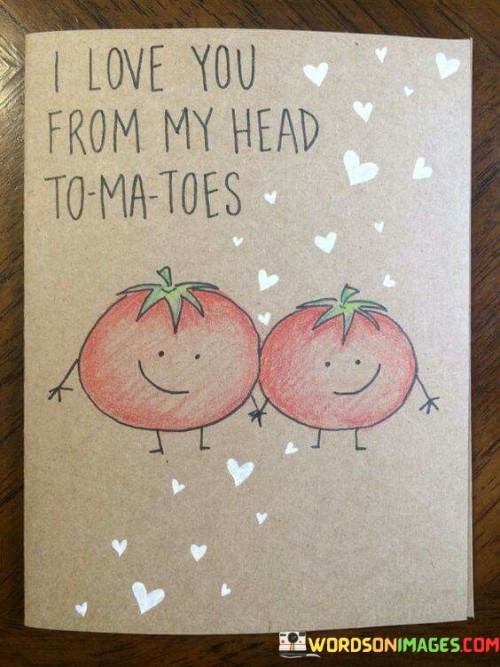 I LOVE YOU
FROM MY HEAD
TO-MA-TOES
WORDSONIMAGES.COM